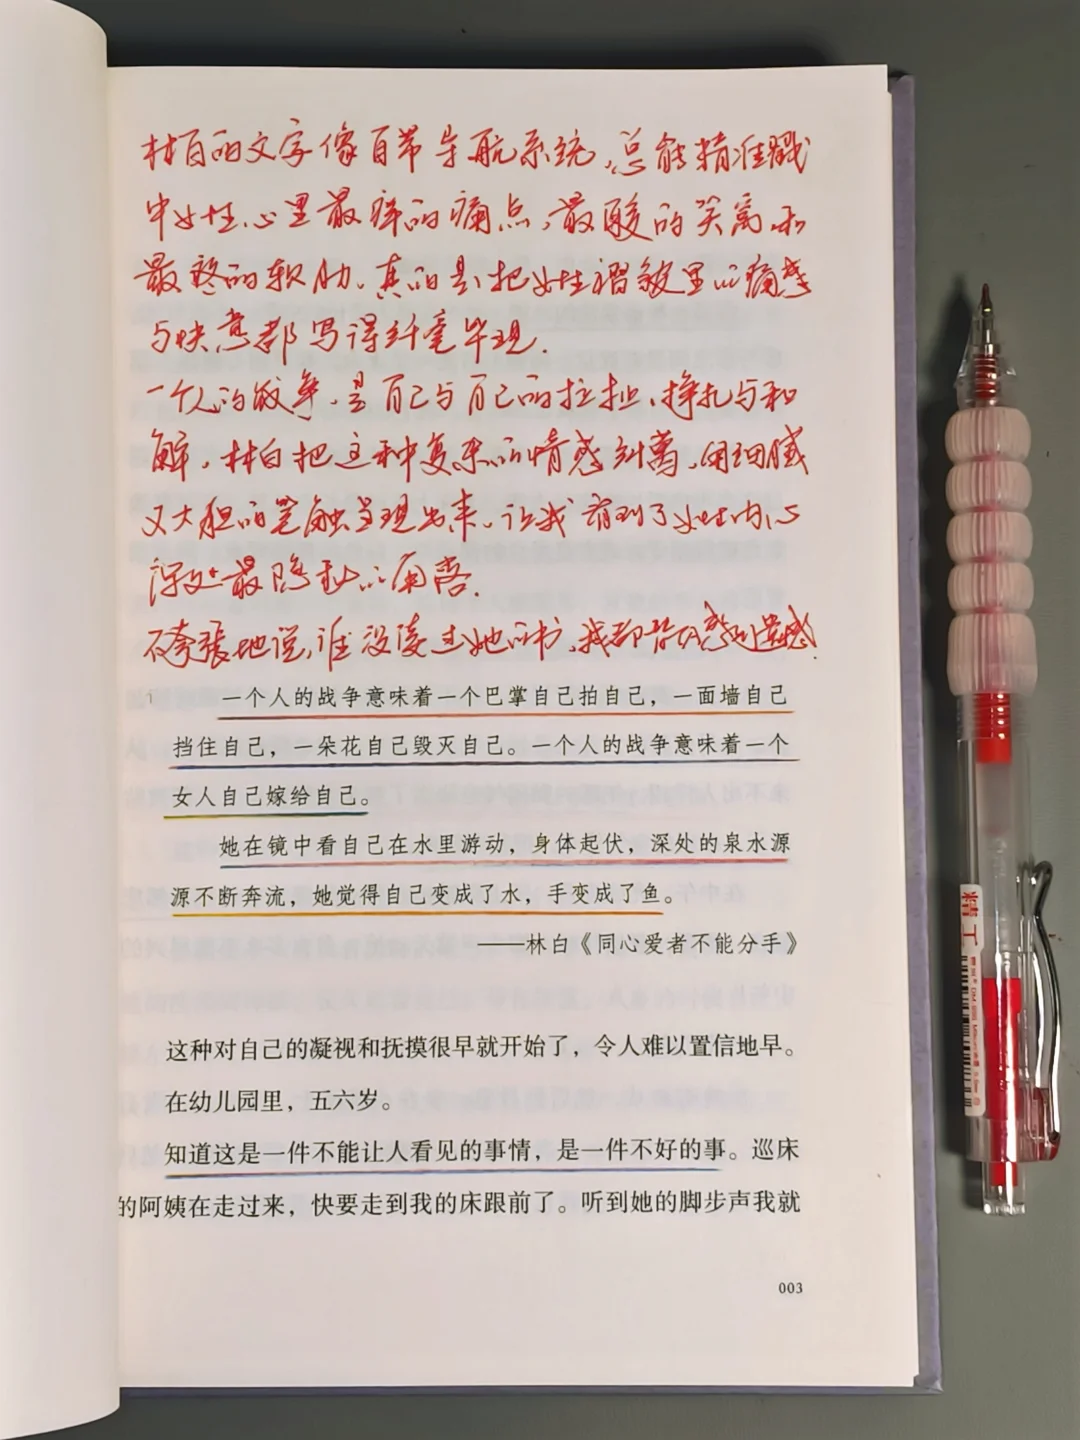 林白的文字像自带导航系统，总能精准戳
中女性心里最痒的痛点，最酸的哭离和
最疼的软肋，真的是把女性褶皱里的痛感
与快意都写得纤毫毕现.
一个人的战争，是自己与自己的拉扯、挣扎与和
解，林白把这种复杂的情感纠葛，用细腻
又大胆的笔触呈现出来，让我看到了女性内心
深处最隐秘的角落.
不夸张地说，谁没读过她的书，我都替她感到遗憾.
一个人的战争意味着一个巴掌自己拍自己，一面墙自己
挡住自己，一朵花自己毁灭自己。一个人的战争意味着一个
女人自己嫁给自己。
她在镜中看自己在水里游动，身体起伏，深处的泉水源
源不断奔流，她觉得自己变成了水，手变成了鱼。
——林白《同心爱者不能分手》
这种对自己的凝视和抚摸很早就开始了，令人难以置信地早。
在幼儿园里，五六岁。
知道这是一件不能让人看见的事情，是一件不好的事。巡床
的阿姨在走过来，快要走到我的床跟前了。听到她的脚步声我就
003
精工